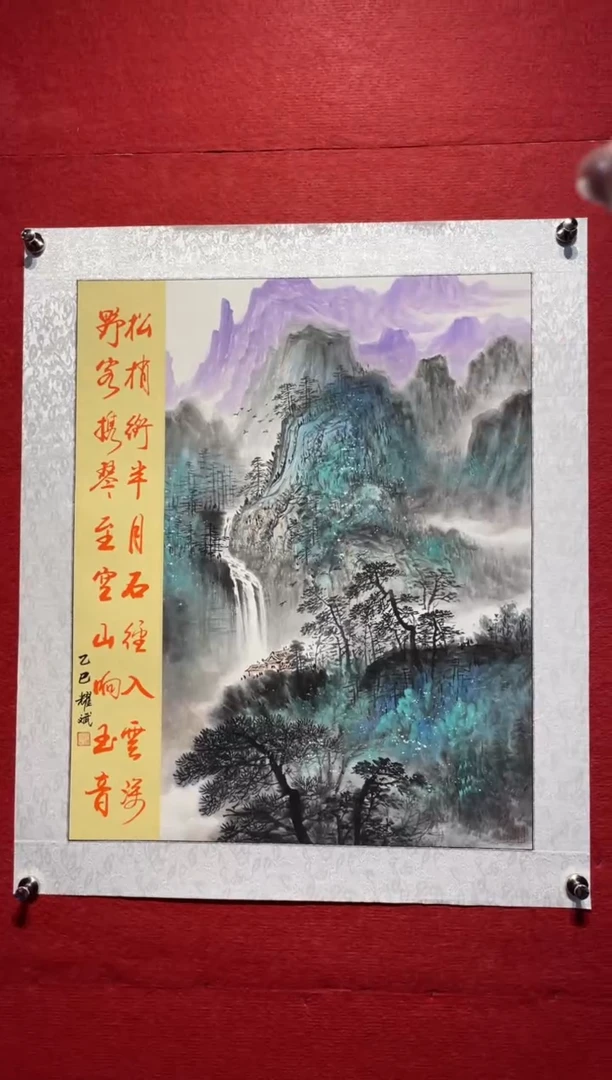 松梢衔半月石径入雲深
野客携琴至空山响玉音
乙巳耀斌